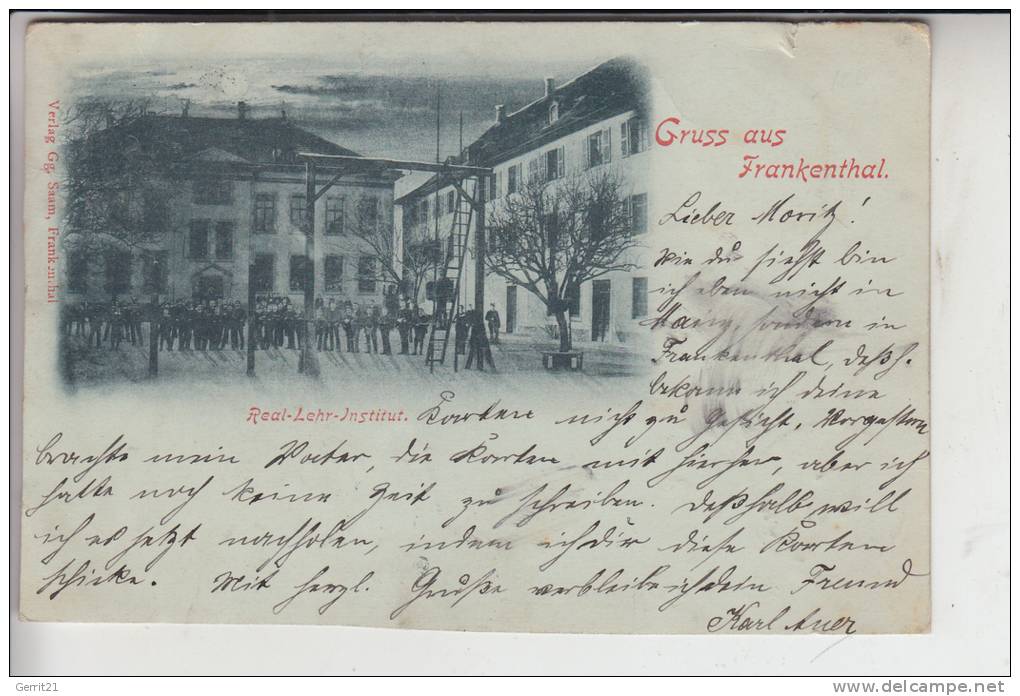 Verlag Gg. Saam, Frankenthal
Gruss aus
Frankenthal.
Real-Lehr-Institut.
Lieber Moritz!
Wie du siehst bin
ich eben nicht in
Mainz, sondern in
Frankenthal, deßh.
bekam ich deine
Karten nicht zu Gesicht. Vorgestern
brachte mein Vater, die Karten mit hierher, aber ich
hatte noch keine Zeit zu schreiben. Deßhalb will
ich es jetzt nachholen, indem ich dir diese Karten
schicke. Mit herzl. Gruße verbleibe ich dein Freund
Karl Auer
Gerrit21
www.delcampe.net